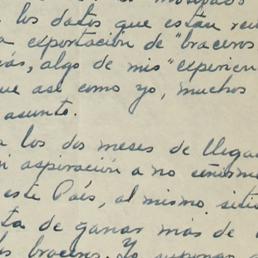 los datos que están reu
a exportación de "braceros
ás, algo de mis "experien
ue así como yo, muchos
asunto.
a los dos meses de llega
mi aspiración a no ceñirme
este País, al mismo sitio
ta de ganar más de
los braceros. Yo supongo